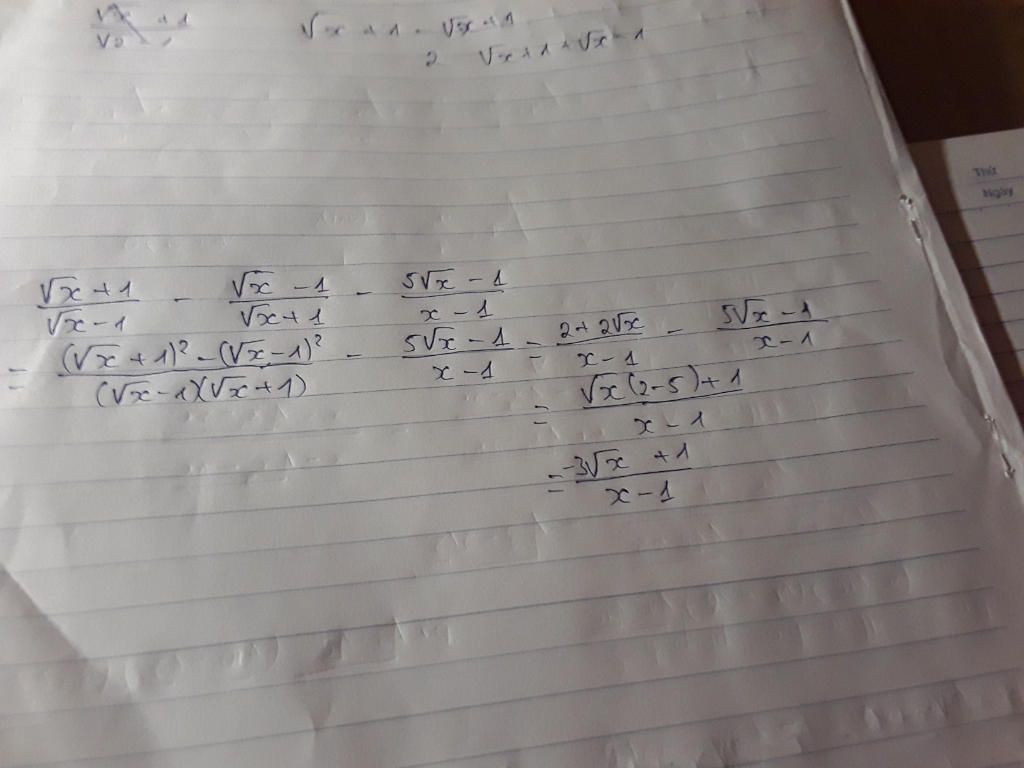 √x + 1 - √x + 1
2 √x + 1 + √x - 1
Thứ
Ngày
(√x + 1)/(√x - 1) - (√x - 1)/(√x + 1) - (5√x - 1)/(x - 1)
= ((√x + 1)² - (√x - 1)²)/((√x - 1)(√x + 1)) - (5√x - 1)/(x - 1) = (2 + 2√x)/(x - 1) - (5√x - 1)/(x - 1)
= (√x(2 - 5) + 1)/(x - 1)
= (-3√x + 1)/(x - 1)